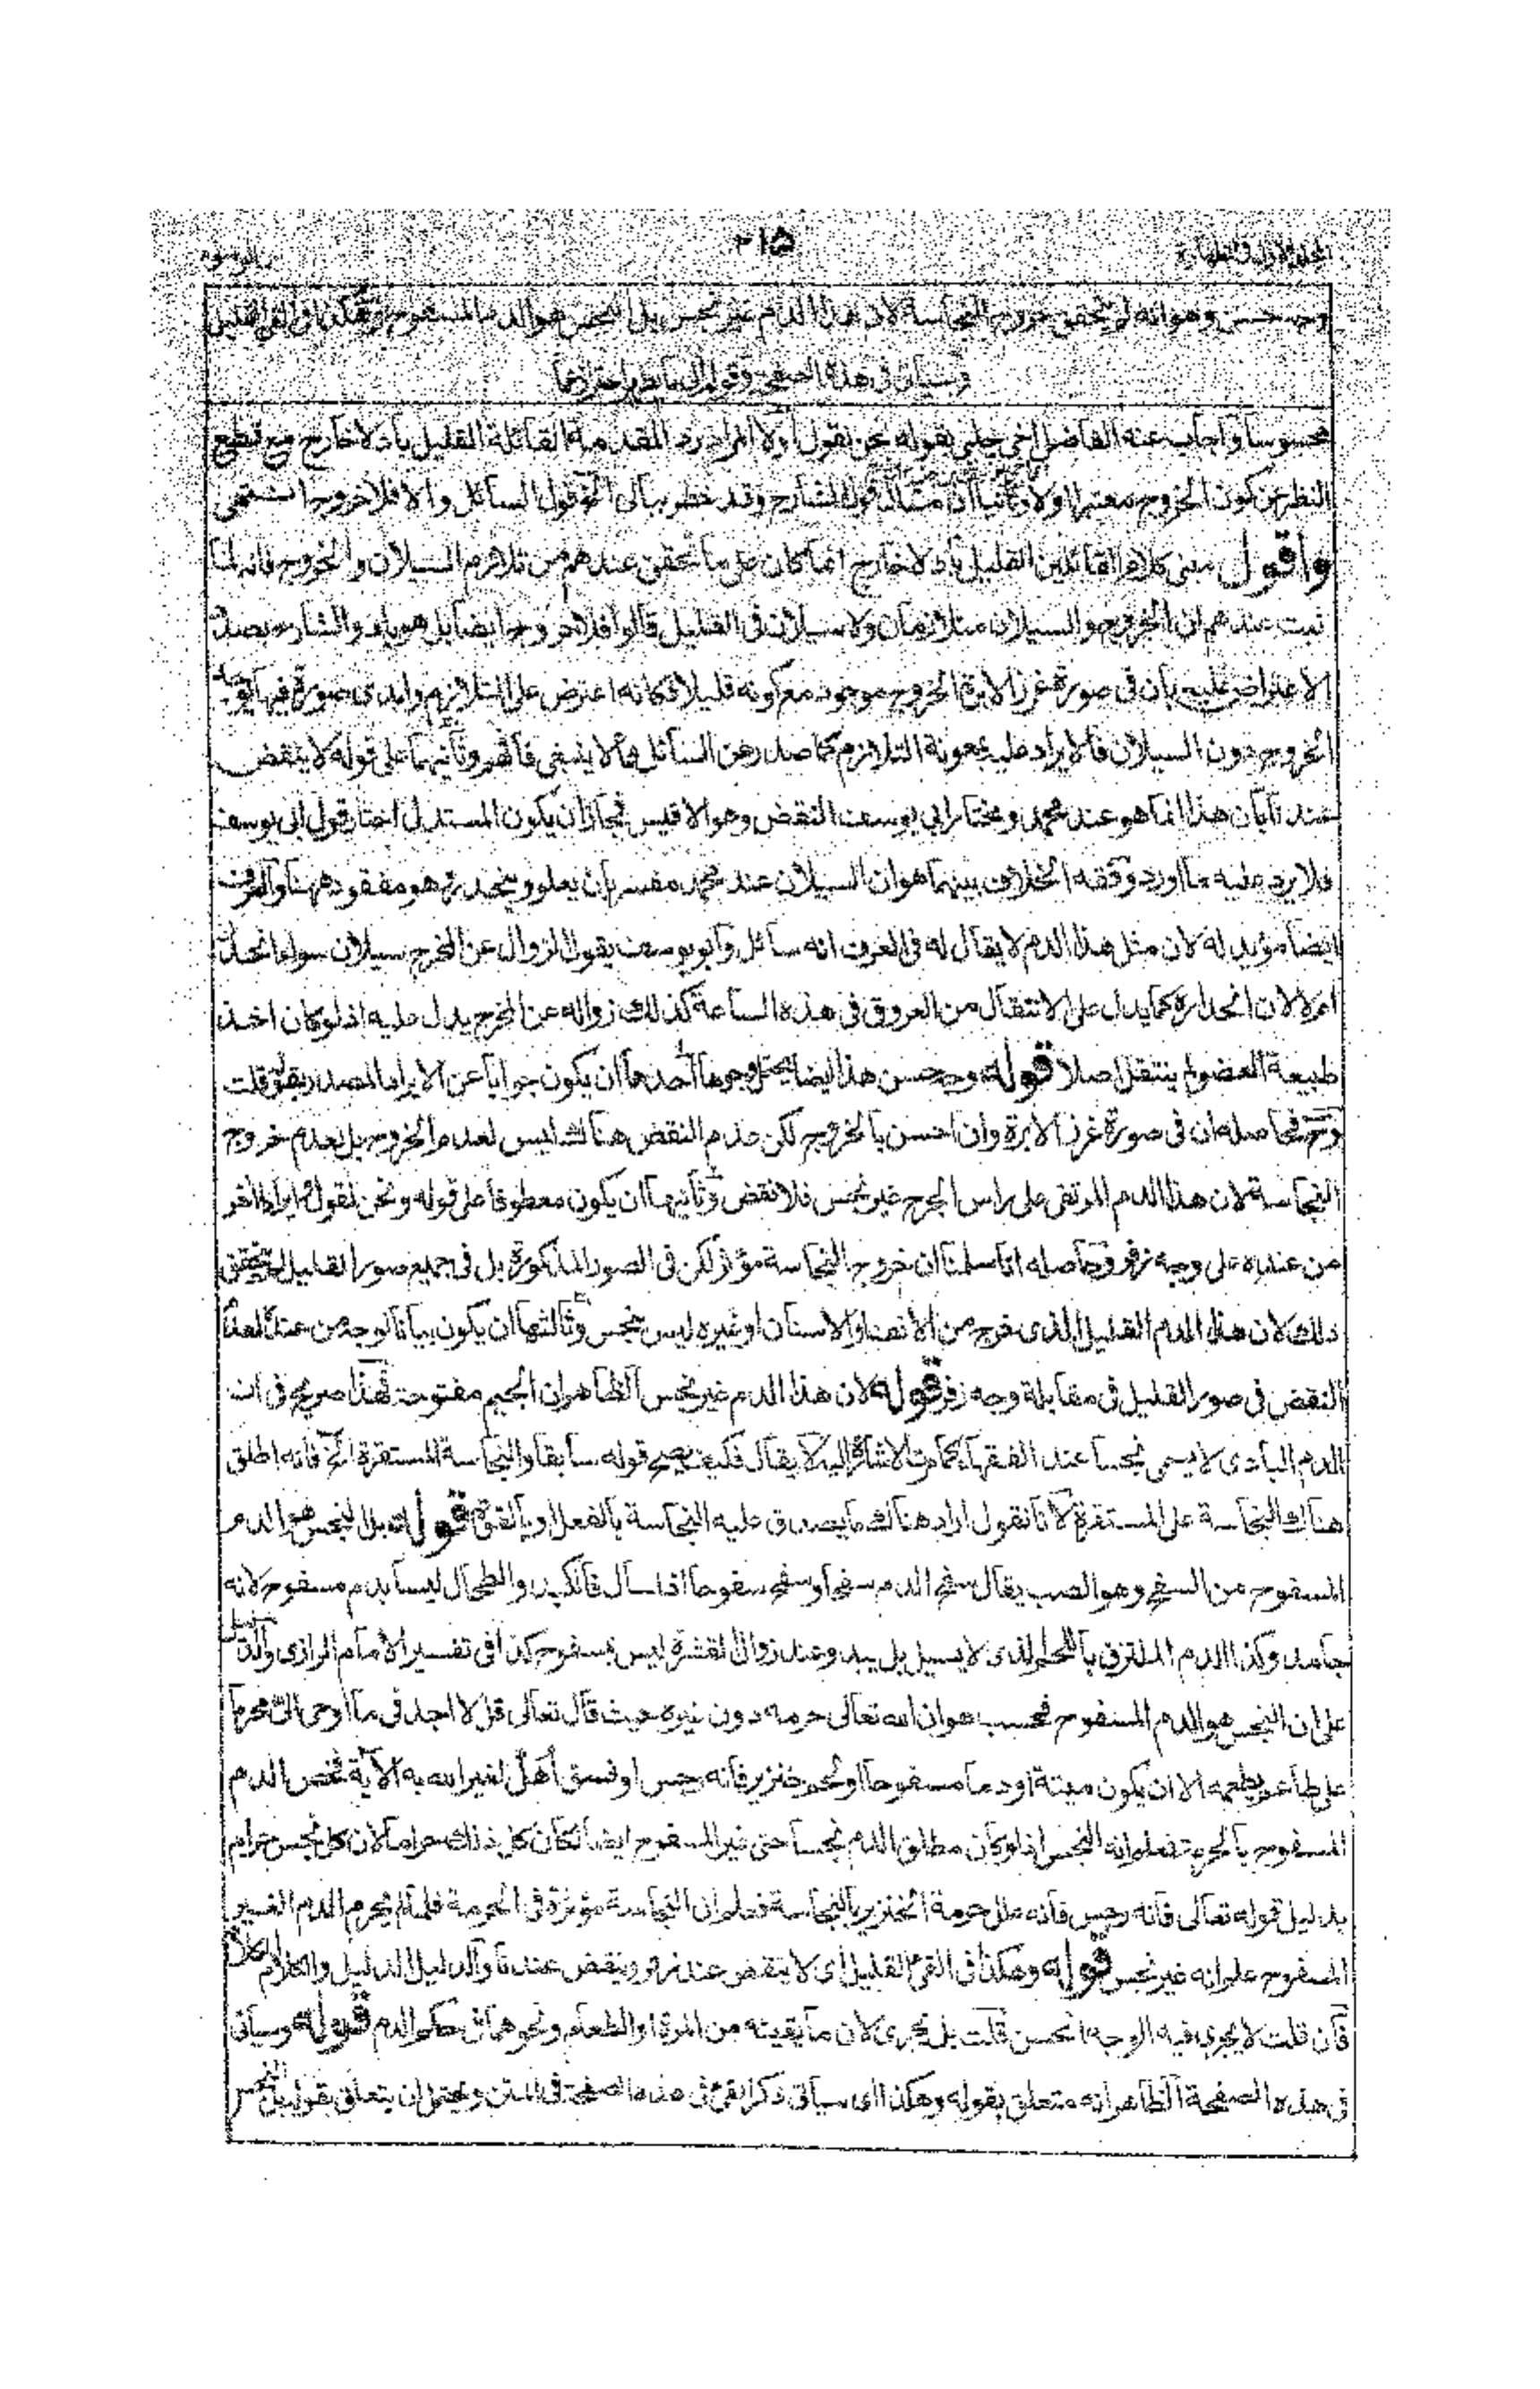 ٢١٥
وجه حسن وهو انه لم يتحقق خروج النجاسة لان هذا الدم غير نجس بل النجس هو الدم المسفوح وهكذا في القئ القليل
وسياتى فى هذه الصفحة
محسوسا واجاب عنه الفاضل اخى چلپى بقوله نحن نقول اولا المراد رد المقدمة القائلة القليل باد لا خارج مع قطع
النظر عن كون الخروج معتبرا اولا وثانيا ان قول الشارح وقد خطر ببالى الخ قول السائل والا فلا خروج انتهى
واقول مبنى كلام القائلين القليل باد لا خارج انما كان على ما تحقق عندهم من تلازم السيلان والخروج فانه لما
ثبت عندهم ان الخروج والسيلان متلازمان ولا سيلان فى القليل قالوا فلا خروج ايضا بل هو باد والشارح بصدد
الاعتراض عليه بأن فى صورة غرز الابرة الخروج موجود مع كونه قليلا فكانه اعترض على التلازم وابدى صورة فيها يوجد
الخروج دون السيلان فالايراد عليه بمعونة التلازم كما صدر عن السائل مما لا ينبغى فافهم وثانيهما على قوله لا ينقض
عندنا بان هذا انما هو عند محمد ومختار ابى يوسف النقض وهو الاقيس فجاز ان يكون المستدل اختار قول ابى يوسف
فلا يرد عليه ما اورد وفقه الخلاف بينهما هو ان السيلان عند محمد مفسر بان يعلو وينحدر وهو مفقود ههنا والعرف
ايضا مؤيد له لان مثل هذا الدم لا يقال له فى العرف انه سائل وابو يوسف يقول الزوال عن المخرج سيلان سواء انحدر
ام لا لان انحداره كما يدل على الانتقال من العروق فى هذه الساعة كذلك زواله عن المخرج يدل عليه اذ لو كان اخذ
طبيعة العضو لم ينتقل اصلا قوله وجه حسن هذا ايضا يحتمل وجوها احدها ان يكون جوابا عن الايراد المصدر بقوله قلت
وح فحاصله ان فى صورة غرز الابرة وان احسن بالخروج لكن عدم النقض هناك ليس لعدم الخروج بل لعدم خروج
النجاسة لان هذا الدم المرتقى على راس الجرح غير نجس فلا نقض وثانيها ان يكون معطوفا على قوله ونحن نقول ايرادا اخر
من عنده على وجه زفر وحاصله انا سلمنا ان خروج النجاسة مؤثر لكن فى الصور المذكورة بل فى جميع صور القليل لم يتحقق
ذلك لان هذا الدم القليل الذى خرج من الانف او الاسنان او غيره ليس بنجس وثالثها ان يكون بيانا لوجه من عنده لعدم
النقض فى صور القليل فى مقابلة وجه زفر قوله لان هذا الدم غير نجس الظاهر ان الجيم مفتوحة فهذا صريح فى ان
الدم البادى لا يسمى نجسا عند الفقهاء كما مرت الاشارة اليه لا يقال فكيف يصح قوله سابقا والنجاسة المستقرة الخ فانه اطلق
هناك النجاسة على المستقرة لانا نقول اراد هناك ما يصدق عليه النجاسة بالفعل او بالقوة قوله بل النجس هو الدم
المسفوح من السفح وهو الصب يقال سفح الدم سفحا وسفح سفوحا اذا سال فالكبد والطحال ليسا بدم مسفوح لانه
جامد وكذا الدم الملتزق باللحم الذى لا يسيل بل يبدو عند زوال القشرة ليس بمسفوح كذا فى تفسير الامام الرازى والدليل
على ان النجس هو الدم المسفوح فحسب هو ان الله تعالى حرمه دون غيره حيث قال تعالى قل لا اجد فى ما اوحى الىّ محرما
على طاعم يطعمه الا ان يكون ميتة او دما مسفوحا او لحم خنزير فانه رجس او فسق اُهلّ لغير الله به الآية فخص الدم
المسفوح بالحرمة فعلم انه النجس اذ لو كان مطلق الدم نجسا حتى غير المسفوح ايضا لكان كل ذلك حراما لان كل نجس حرام
بدليل قوله تعالى فانه رجس فانه علل حرمة الخنزير بالنجاسة فعلم ان النجاسة مؤثرة فى الحرمة فلما لم يحرم الدم الغير
المسفوح علم انه غير نجس قوله وهكذا فى القئ القليل اى لا ينقض عندنا وينقض عند زفر والدليل الدليل والكلام الكلام
فان قلت لا يجرى فيه الوجه الحسن قلت بل يجرى لان ما يقيئه من المرة او الطعام ونحوهما فى حكم الدم قوله وسياتى
فى هذه الصفحة الظاهر انه متعلق بقوله وهكذا اى سياتى ذكر القئ فى هذه الصفحة فى المتن ويحتمل ان يتعلق بقوله بل النجس